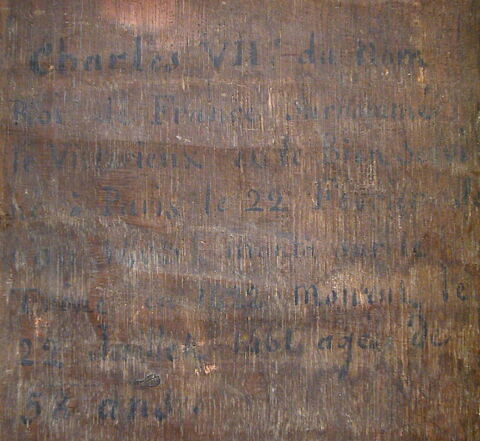 Charles VII.e du Nom
Roi de France Surnommé
le Victorieux et le Bien Servi
né à Paris le 22 Février de
l'an monta sur le
Trône en mourut le
22 Juillet 1461 agé de
58 ans.